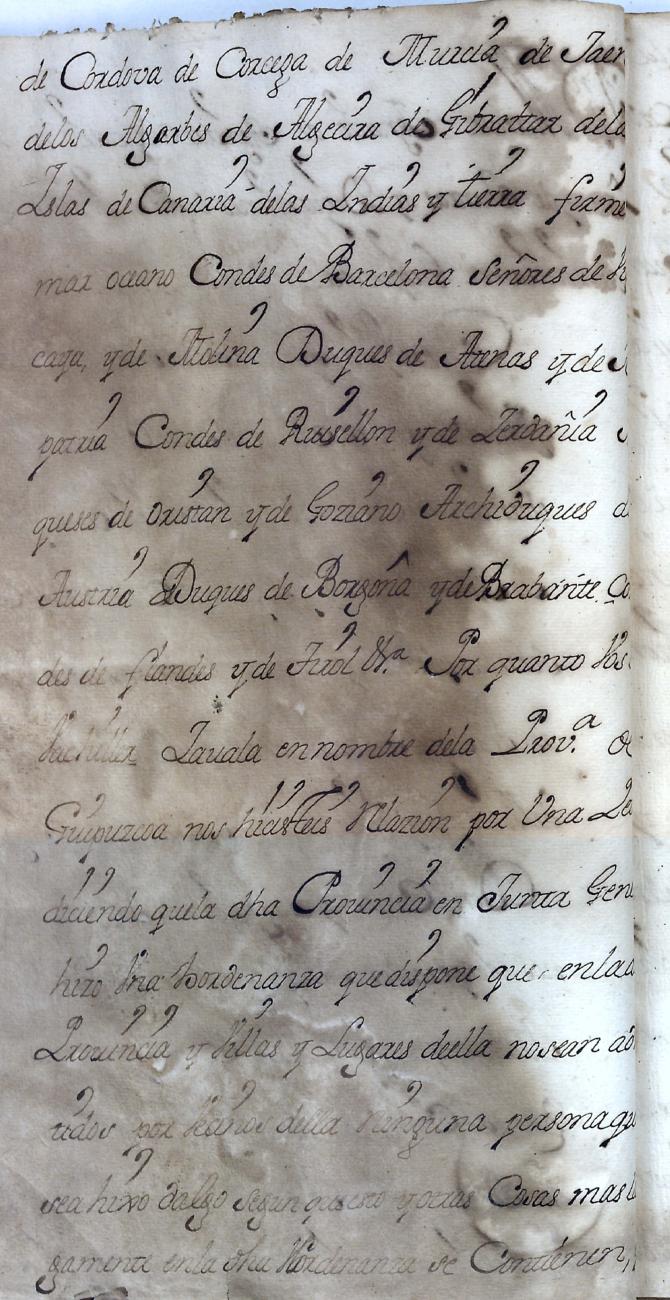 de Cordova de Corcega de Murcia de Jaen
delos Algarbes de Algecira de Gibraltar dela
Islas de Canaria delas Indias y tierra firme
mar oceano Condes de Barcelona Señores de
caya, y de Molina Duques de Atenas y de
patria Condes de Ruisellon y de Zerdañia
queses de Oristan y de Goziano Archiduques d
Austria Duques de Borgoña y de Brabante Co
des de flandes y de Tirol &.ª Por quanto Vos
Vachiller Zavala en nombre dela Prov.ª d
Guipuzcoa nos hicisteis Relazion por Una
diciendo quela dha Provincia en Junta Gen
hizo Vna hordenanza que dispone que enla
Provincia y Villas y Lugares deella no sean ad
tidos por Vecinos della Ninguna persona qu
sea hixo dalgo segun que esto y otras Cosas mas
gamente enla dha Hordenanza se Contienen,